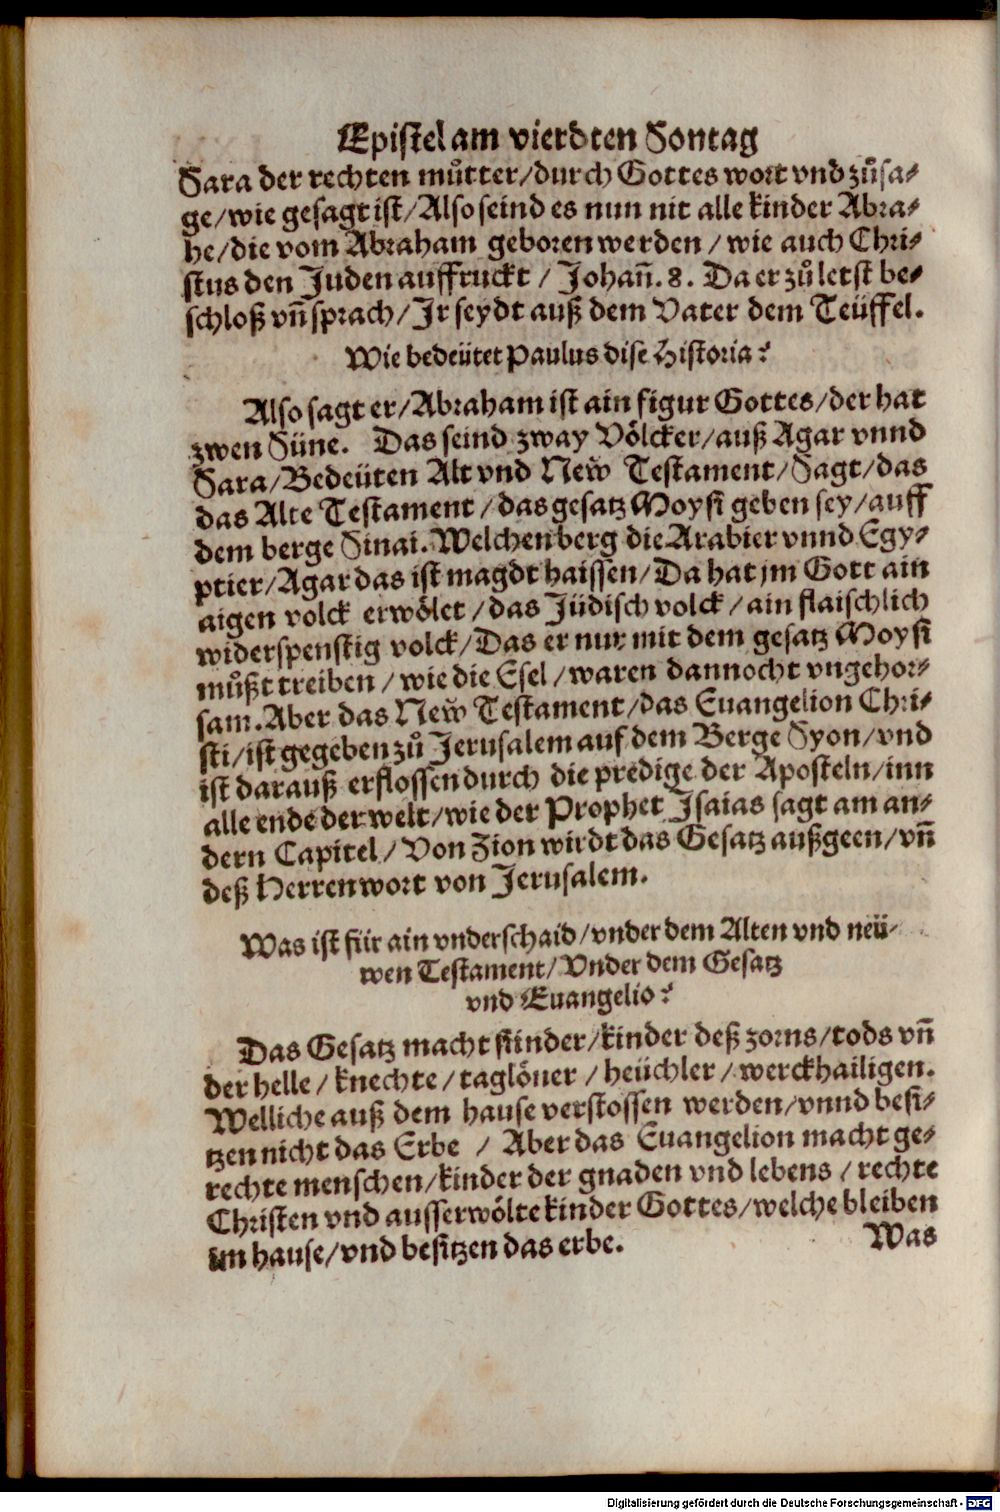 Epistel am vierdten Sontag
Sara der rechten můtter/durch Gottes wort vnd zůsa⸗
ge/wie gesagt ist/Also seind es nun nit alle kinder Abra⸗
he/die vom Abraham geboren werden/wie auch Chri⸗
stus den Juden auffruckt/Johañ. 8. Da er zů letst be⸗
schloß vñ sprach/Jr seydt auß dem Vater dem Teüffel.
Wie bedeütet Paulus dise Historia?
Also sagt er/Abraham ist ain figur Gottes/der hat
zwen Süne. Das seind zway Völcker/auß Agar vnnd
Sara/Bedeüten Alt vnd New Testament/Sagt/das
das Alte Testament/das gesatz Moysi geben sey/auff
dem berge Sinai. Welchen berg die Arabier vnnd Egy⸗
ptier/Agar das ist magdt haissen/Da hat jm Gott ain
aigen volck erwölet/das Jüdisch volck/ain flaischlich
widerspenstig volck/Das er nur mit dem gesatz Moysi
můßt treiben/wie die Esel/waren dannocht vngehor⸗
sam. Aber das New Testament/das Euangelion Chri⸗
sti/ist gegeben zů Jerusalem auf dem Berge Syon/vnd
ist darauß erflossen durch die predige der Aposteln/inn
alle ende der welt/wie der Prophet Jsaias sagt am an⸗
dern Capitel/Von Zion wirdt das Gesatz außgeen/vñ
deß Herren wort von Jerusalem.
Was ist für ain vnderschaid/vnder dem Alten vnd neü⸗
wen Testament/Vnder dem Gesatz
vnd Euangelio?
Das Gesatz macht sünder/kinder deß zorns/tods vñ
der helle/knechte/taglöner/heüchler/werckhailigen.
Welliche auß dem hause verstossen werden/vnnd besi⸗
tzen nicht das Erbe/Aber das Euangelion macht ge⸗
rechte menschen/kinder der gnaden vnd lebens/rechte
Christen vnd ausserwölte kinder Gottes/welche bleiben
im hause/vnd besitzen das erbe. Was
Digitalisierung gefördert durch die Deutsche Forschungsgemeinschaft - DFG